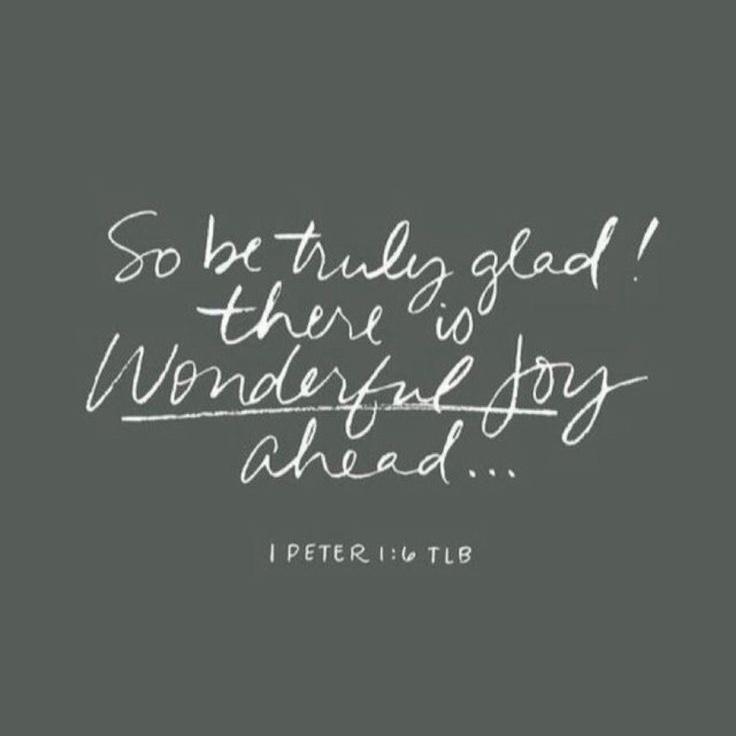 So be truly glad!
there is
Wonderful Joy
ahead...
1 PETER 1:6 TLB